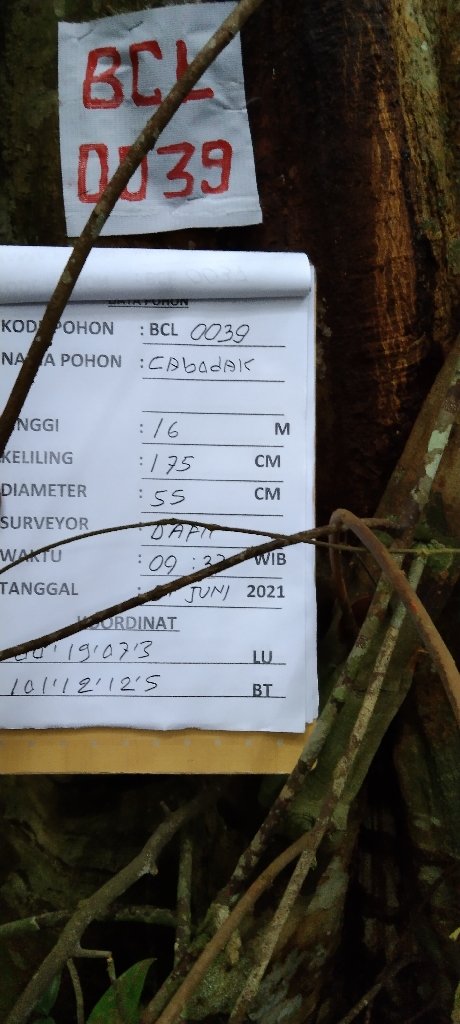 BCL
0039
DATA POHON
KODE POHON : BCL 0039
NAMA POHON : CAbodAK
TINGGI : 16 M
KELILING : 175 CM
DIAMETER : 55 CM
SURVEYOR :
WAKTU : 09 : 37 WIB
TANGGAL : JUNI 2021
KOORDINAT
00'19'07'3 LU
101'12'12'5 BT